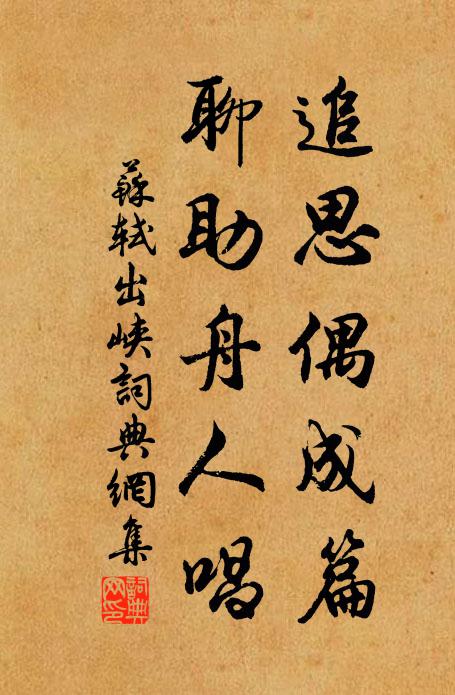 追思偶成篇
聊助舟人唱
蘇軾出峽詞典網集
詞典網印